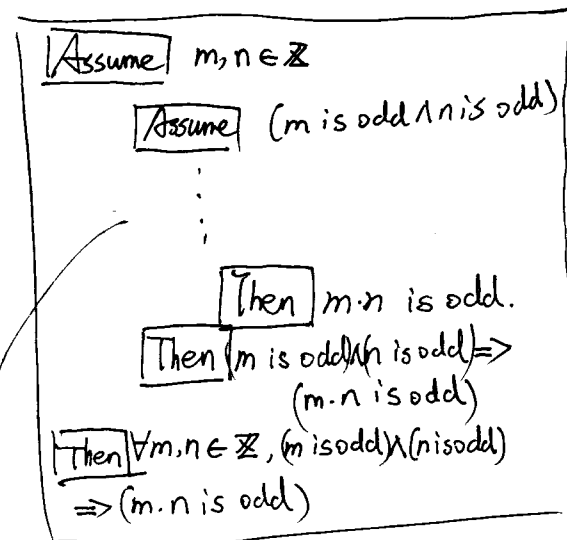 Assume m, n ∈ ℤ
Assume (m is odd ∧ n is odd)
Then m·n is odd.
Then (m is odd)∧(n is odd) ⇒
(m·n is odd)
Then ∀m,n ∈ ℤ, (m is odd)∧(n is odd)
⇒ (m·n is odd)